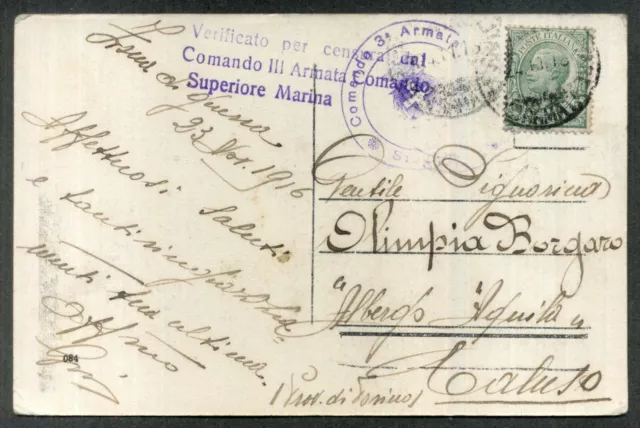 Verificato per censura dal
Comando III Armata Comando
Superiore Marina
Comando 3ª Armata
POSTE ITALIANE
di Guerra
23 Nov. 1916
Affettuosi saluti
e
tua ultima.
084
Gentile Signorina
Olimpia Borgaro
"Albergo Aquila"
Caluso
(Prov. di Torino)